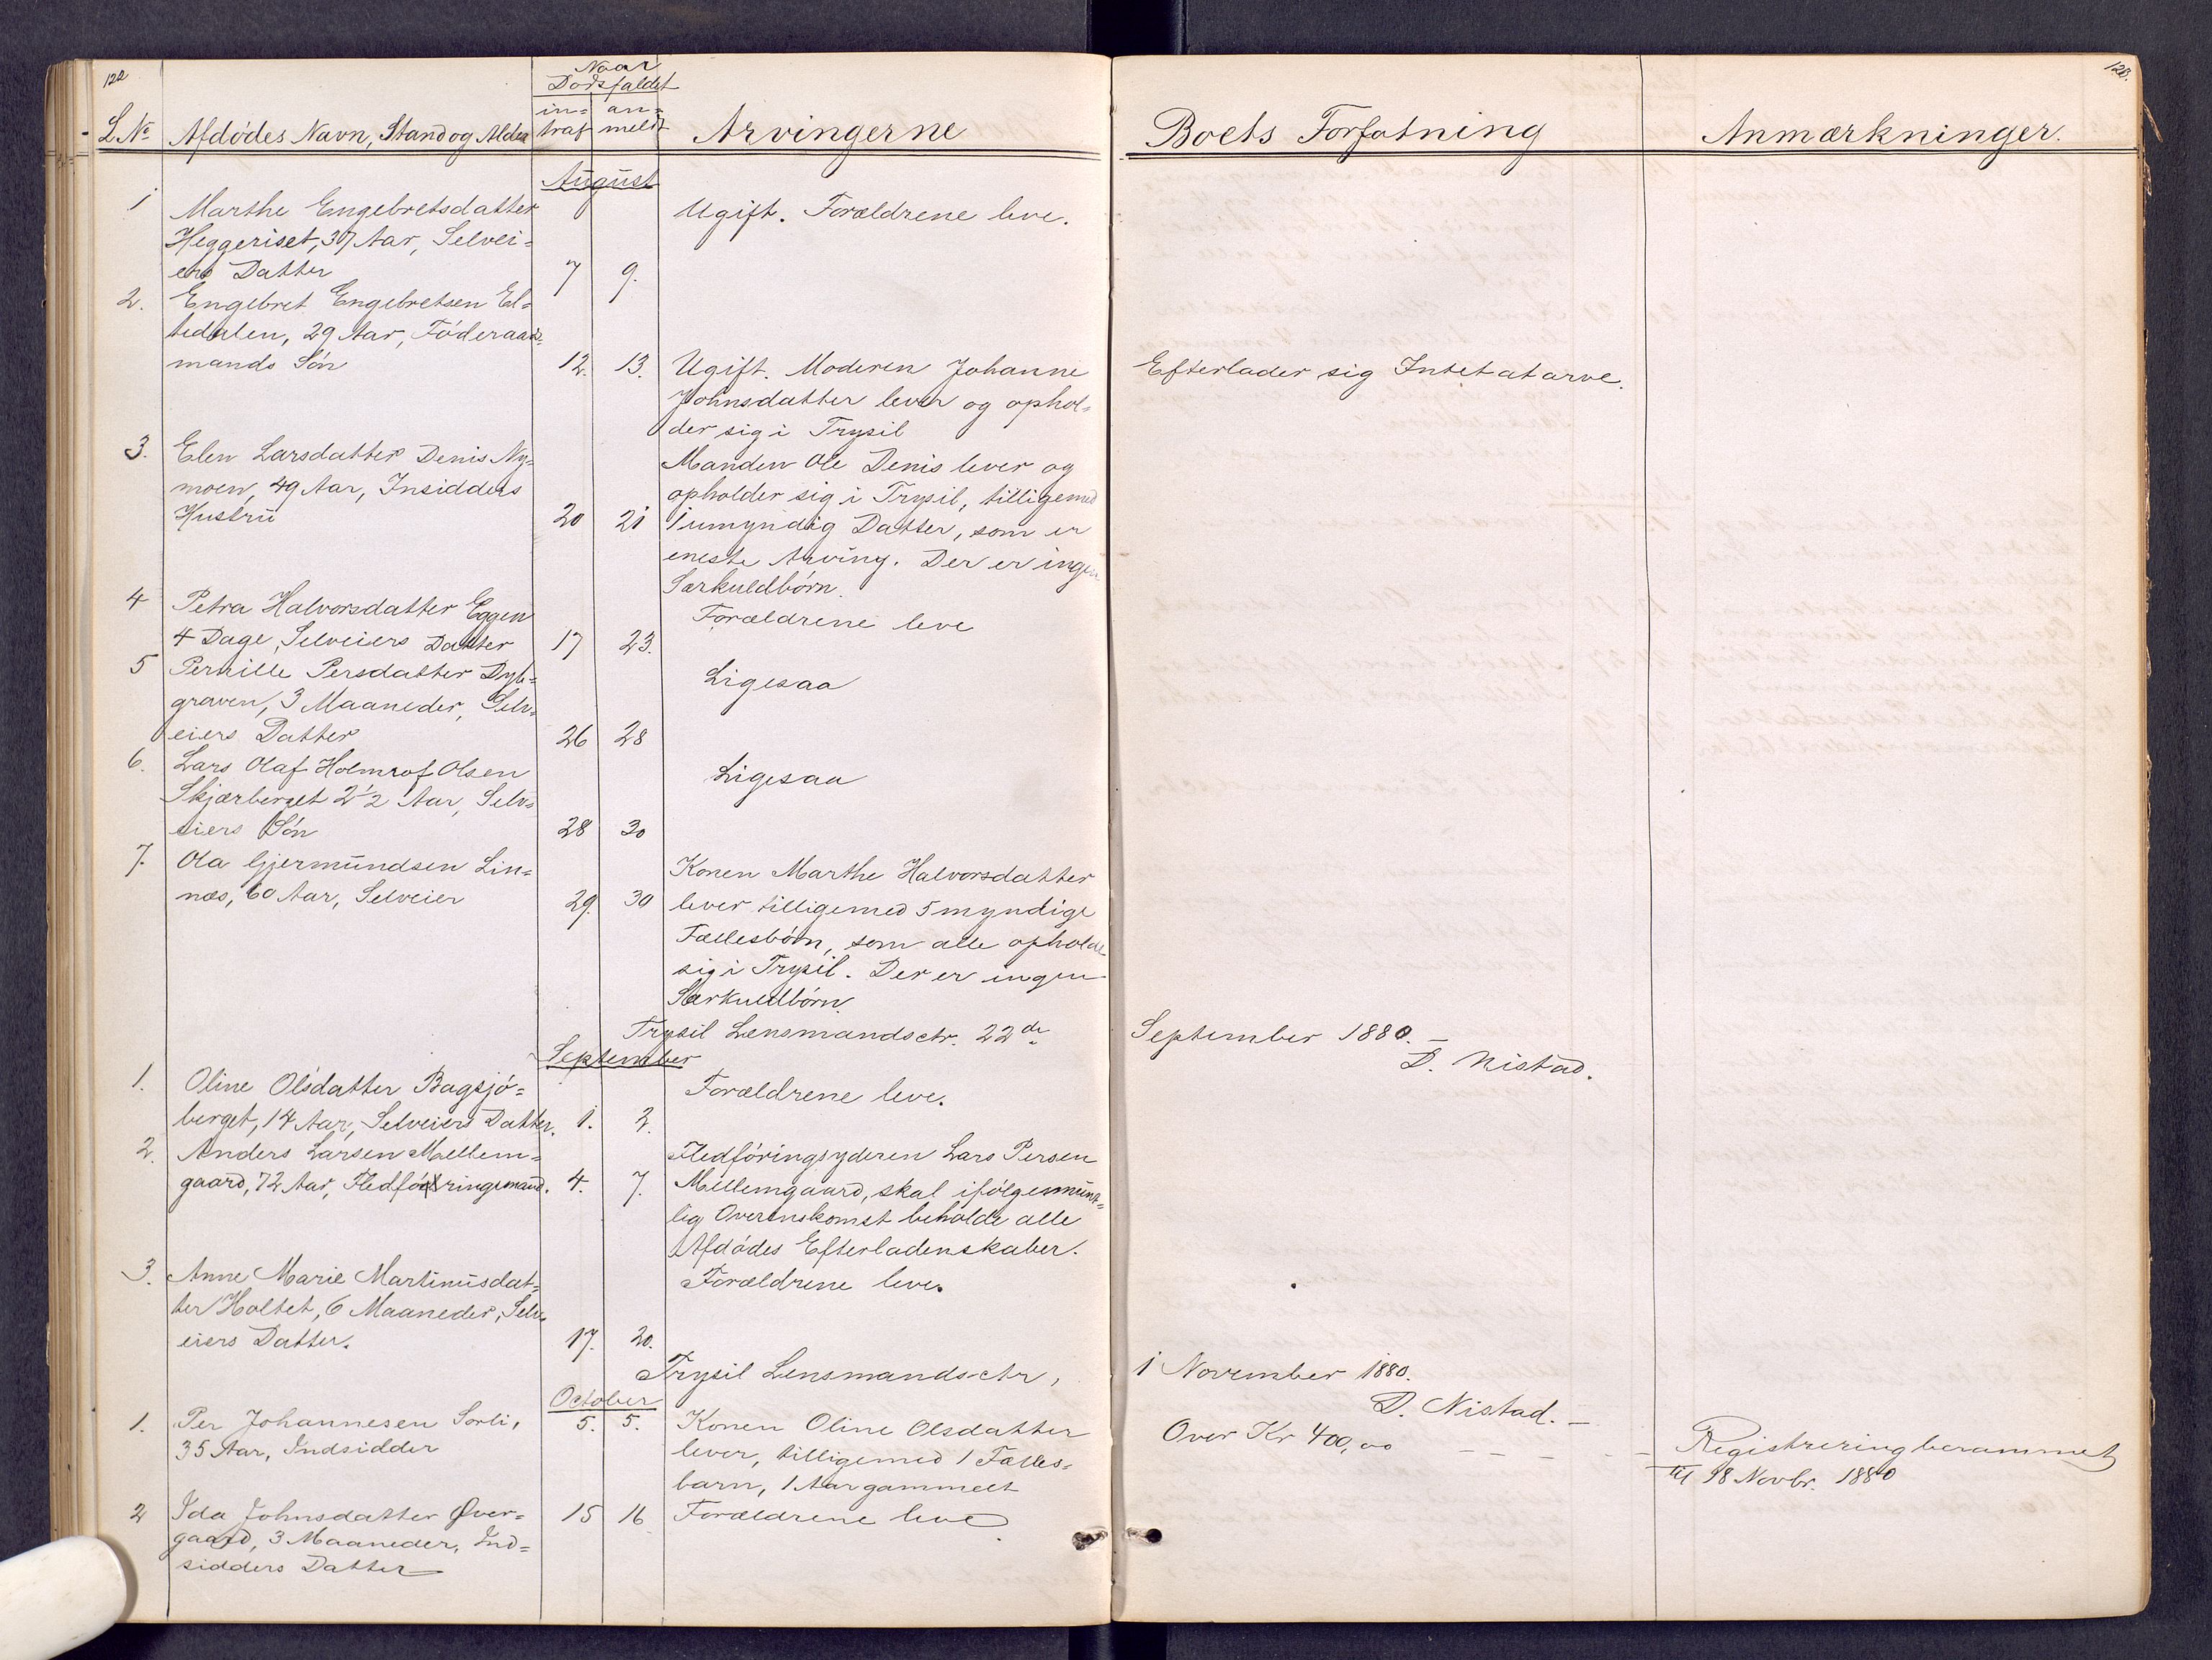 122
Naar
Dödsfaldet
in= an=
L. No Afdödes Navn, Stand og Alder traf meldt Arvingerne
August
1 Marthe Engebretsdatter Ugift. Forældrene leve.
Heggeriset, 37 Aar, Selvei=
ers Datter 7 9.
2. Engebret Engebretsen El=
tedalen, 29 Aar, Föderaads=
mands Sön 12. 13. Ugift. Moderen Johanne
Johnsdatter lever og ophol=
der sig i Trysil
3. Elen Larsdatter Denis Ny= Manden Ole Denis lever og
moen, 49 Aar, Insidders opholder sig i Trysil, tilligemed
Hustru 20 21 1 umyndig Datter, som er
eneste Arving. Der er ingen
Særkuldbörn.
4 Petra Halvorsdatter Eggen Forældrene leve
4 Dage, Selveiers Datter 17 23.
5 Pernille Persdatter Dyb= Ligesaa
graven, 3 Maaneder, Selv=
eiers Datter 26 28
6. Lars Olaf Holmrof Olsen Ligesaa
Skjærberget 2 1/2 Aar, Selv=
eiers Sön 28 30
7. Ola Gjermundsen Lin= Konen Marthe Halvorsdatter
næs, 60 Aar, Selveier 29. 30 lever tilligemed 5 myndige
Fællesbörn, som alle opholde
sig i Trysil. Der er ingen
Særkuldbörn.
Trysil Lensmandsctr. 22de
September
1. Oline Olsdatter Bagsjö= Forældrene leve.
berget, 14 Aar, Selveiers Datter. 1. 2.
2. Anders Larsen Mellem= Fledföringsyderen Lars Persen
gaard, 72 Aar, Fledföringsmand. 4. 7. Mellemgaard, skal ifölge mundt=
lig Overenskomst beholde alle
Afdödes Efterladenskaber.
3. Anne Marie Martinusdat= Forældrene leve.
ter Holtet, 6 Maaneder, Selv=
eiers Datter. 17. 20.
Trysil Lensmandsctr,
October
1. Per Johannesen Sorli, 5. 5. Konen Oline Olsdatter
35 Aar, Indsidder lever, tilligemed 1 Fælles=
barn, 1 Aar gammelt
2 Ida Johnsdatter Øver= 15 16 Forældrene leve
gaard, 3 Maaneder, Ind=
sidders Datter
123.
Boets Forfatning Anmærkninger.
Efterlader sig Intet at arve.
September 1880. –
D. Nistad.
1 November 1880.
D. Nistad. –
Over Kr 400,00 – – – – – Registrering berammet
til 18 Novbr. 1880